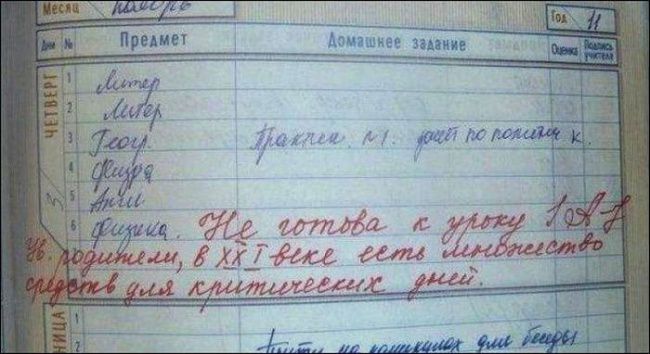 Месяц ноябрь Год 11
Дни № Предмет Домашнее задание Оценка Подпись учителя
ЧЕТВЕРГ
3
1 Литер
2 Литер
3 Геогр. Практич. №1. по к.
4 Физра
5 Англ
6 Физика. Не готова к уроку
Ув. родители, в XXI веке есть множество
средств для критических дней.
1
2 на каникулах для беседы